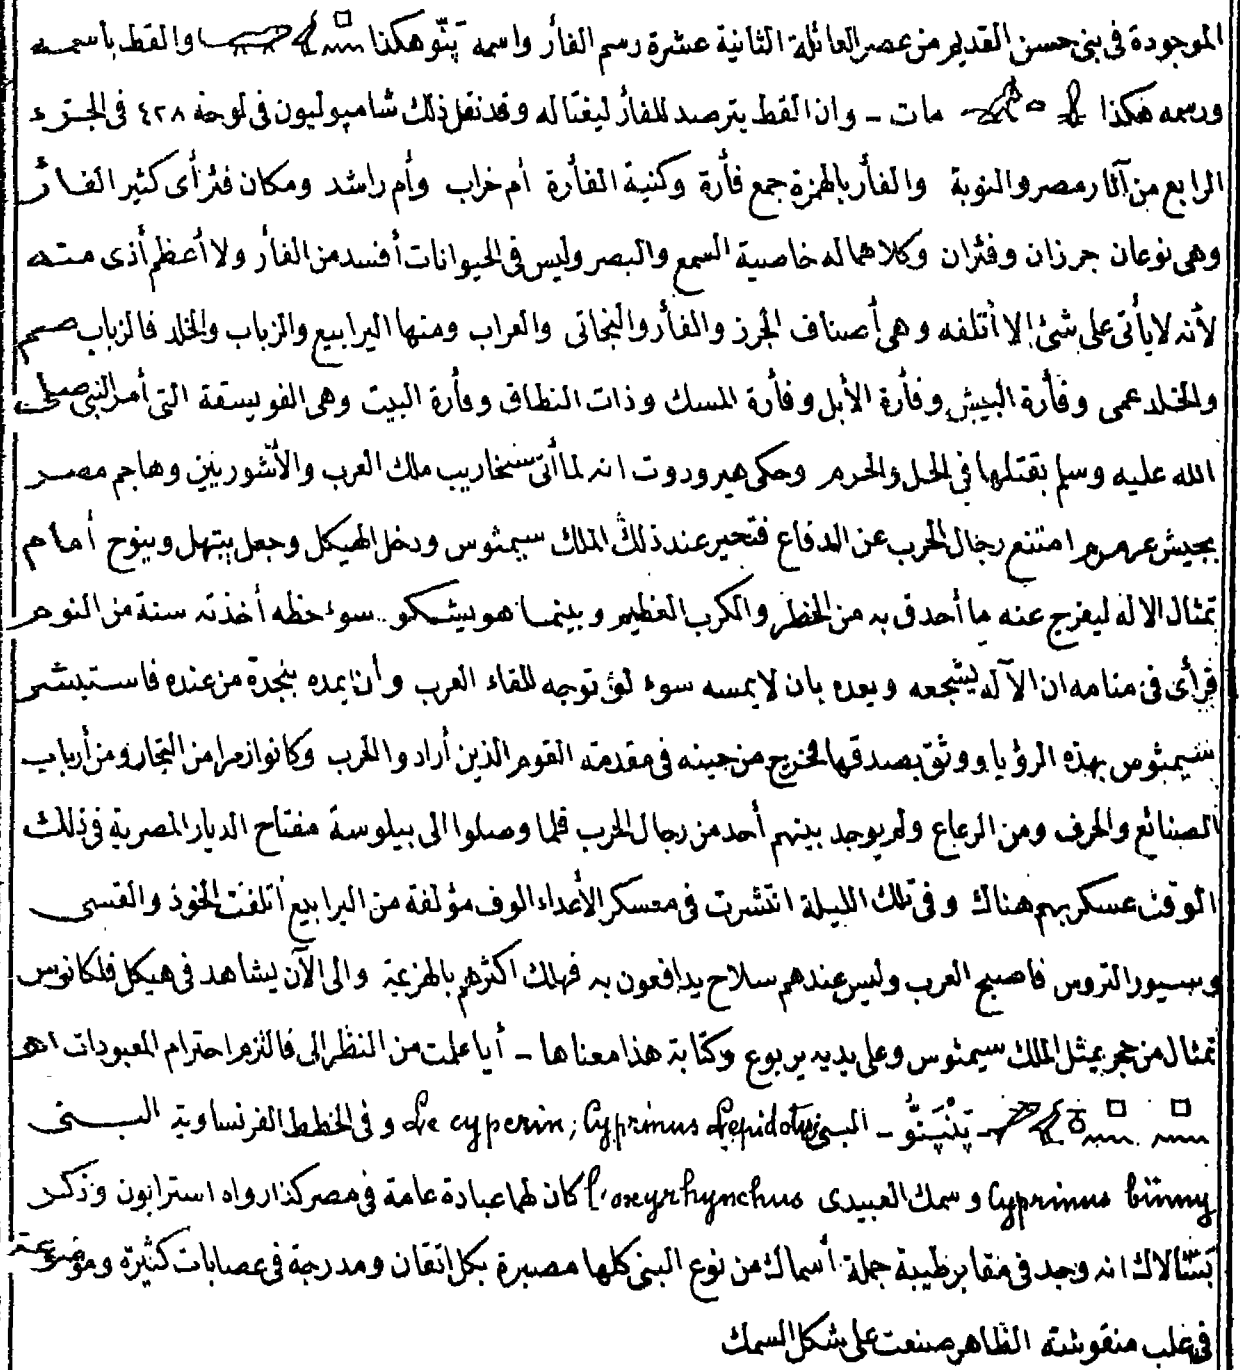 الموجودة فى بنى حسن القديم من عصر العائلة الثانية عشرة رسم الفأر واسمه پَنّو هكذا والقط باسمه
ورسمه هكذا مات - وان القط يترصد للفأر ليغتاله وقد نقل ذلك شامپوليون فى لوحة ٤٢٨ فى الجزء
الرابع من آثار مصر والنوبة والفأر بالهمزة جمع فأرة وكنية الفأرة أم خراب وأم راشد ومكان فئر أى كثير الفأر
وهى نوعان جرزان وفئران وكلاهما له خاصية السمع والبصر وليس فى الحيوانات أفسد من الفأر ولا أعظم أذى منه
لأنه لا يأتى على شئ الا أتلفه وهى أصناف الجرز والفأر والنجاتى والعراب ومنها اليرابيع والزباب والخلد فالزباب صم
والخلد عمى وفأرة البيش وفأرة الأبل وفأرة المسك وذات النطاق وفأرة البيت وهى الفويسقة التى أمر النبى صلى
الله عليه وسلم بقتلها فى الحل والحرم وحكى هيرودوت انه لما أتى سنخاريب ملك العرب والأشوريين وهاجم مصر
بجيش عرمرم امتنع رجال الحرب عن الدفاع فتحير عند ذلك الملك سيمثوس ودخل الهيكل وجعل يبتهل وينوح أمام
تمثال الاله ليفرج عنه ما أحدق به من الخطر والكرب العظيم وبينما هو يشكو سوء حظه أخذته سنة من النوم
فرأى فى منامه ان الآله يشجعه ويعده بان لا يمسه سوء لو توجه للقاء العرب وأن يمده بنجدة من عنده فاستبشر
سيمثوس بهذه الرؤيا ووثق بصدقها فخرج من حينه فى مقدمة القوم الذين أرادوا الحرب وكانوا زمرا من التجار ومن أرباب
الصنائع والحرف ومن الرعاع ولم يوجد بينهم أحد من رجال الحرب فلما وصلوا الى بيلوسة مفتاح الديار المصرية فى ذلك
الوقت عسكر بهم هناك وفى تلك الليلة انتشرت فى معسكر الأعداء الوف مؤلفة من اليرابيع أتلفت الخوذ والقسى
وسيور التروس فاصبح العرب وليس عندهم سلاح يدافعون به فهلك اكثرهم بالهزيمة والى الآن يشاهد فى هيكل فلكانوس
تمثال من حجر يمثل الملك سيمثوس وعلى يديه يربوع وكتابة هذا معناها - أيا علمت من النظر الى فالتزم احترام المعبودات اهـ
پَنْپَنُّو - البنى Le cyperin; Cyprinus Lepidotus وفى الخطط الفرنساوية البنى
Cyprinus binny وسمك العبيدى l'oxyrhynchus كان لهما عبادة عامة فى مصر كذا رواه استرابون وذكر
بَسَّالاكا انه وجد فى مقابر طيبة جملة أسماك من نوع البنى كلها مصبرة بكل اتقان ومدرجة فى عصابات كثيرة وموضوعة
فى علب منقوشة الظاهر صنعت على شكل السمك